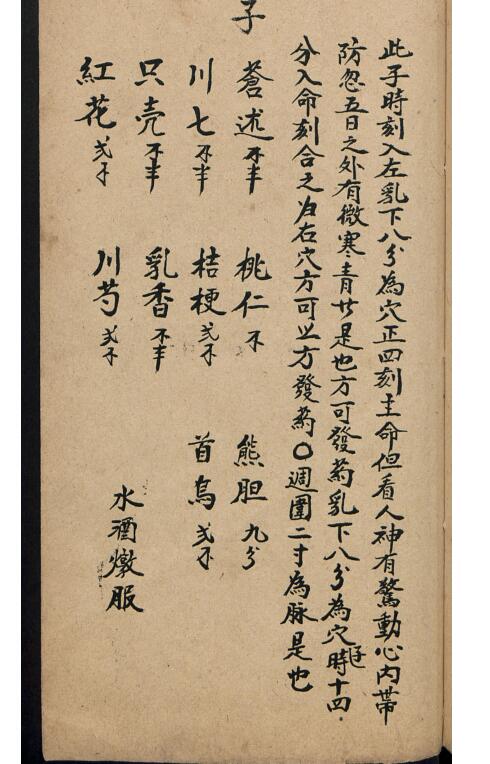 子
此子時刻入左乳下八分為穴正四刻主命但看人神有驚動心內帶
防忽五日之外有微寒青廿是也方可發药乳下八分為穴子時十四
分入命刻合之为右穴方可以方發药〇週圍二寸為脉是也
蒼述不半 桃仁不 熊胆九分
川七不半 桔梗弍不 首烏弍不
只壳不半 乳香不半
紅花弍不 川芎弍不
水酒燉服